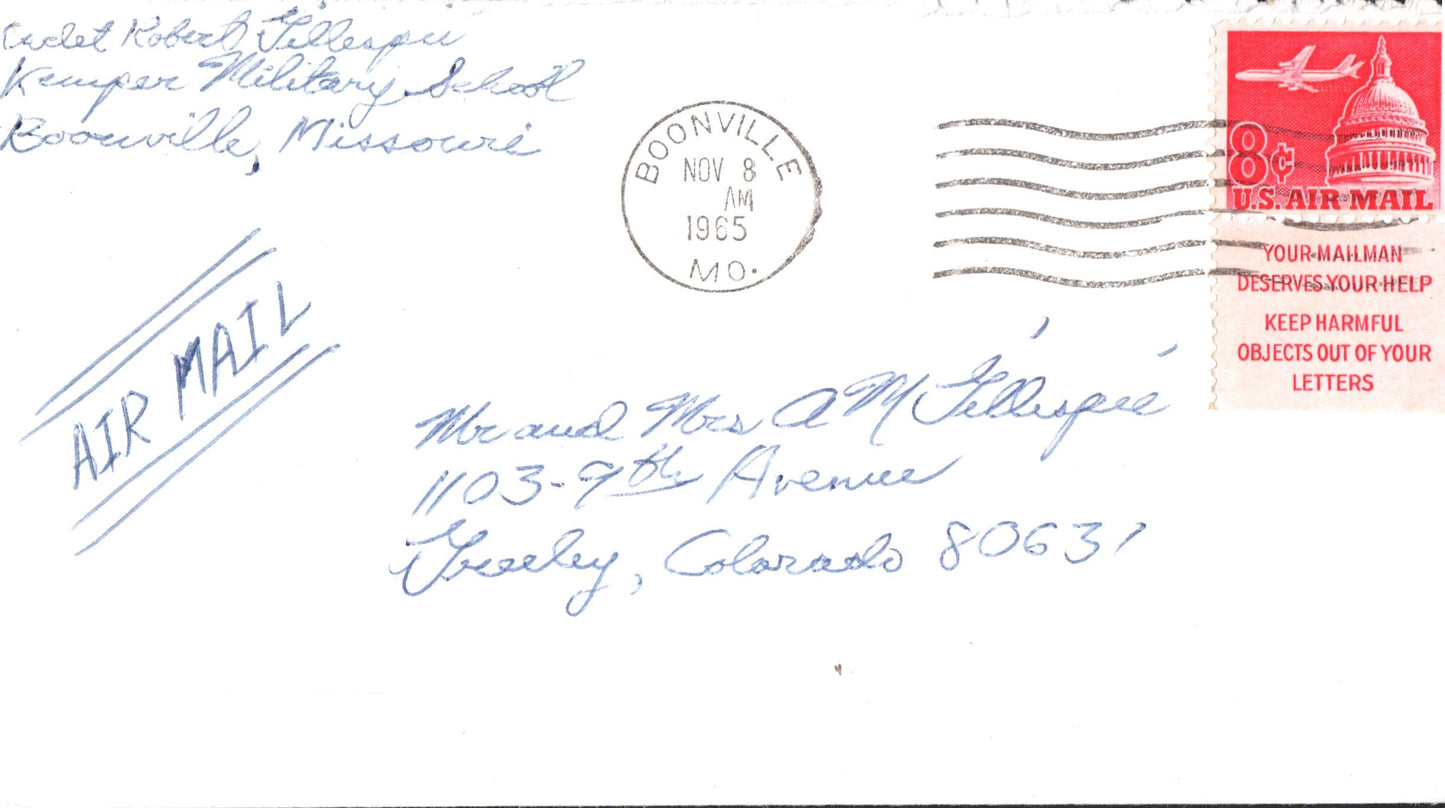 Cadet Robert Gillespie
Kemper Military School
Boonville, Missouri
BOONVILLE
NOV 8
AM
1965
MO.
8¢
U.S. AIR MAIL
YOUR MAILMAN
DESERVES YOUR HELP
KEEP HARMFUL
OBJECTS OUT OF YOUR
LETTERS
AIR MAIL
Mr and Mrs A M Gillespie
1103-9th Avenue
Greeley, Colorado 80631